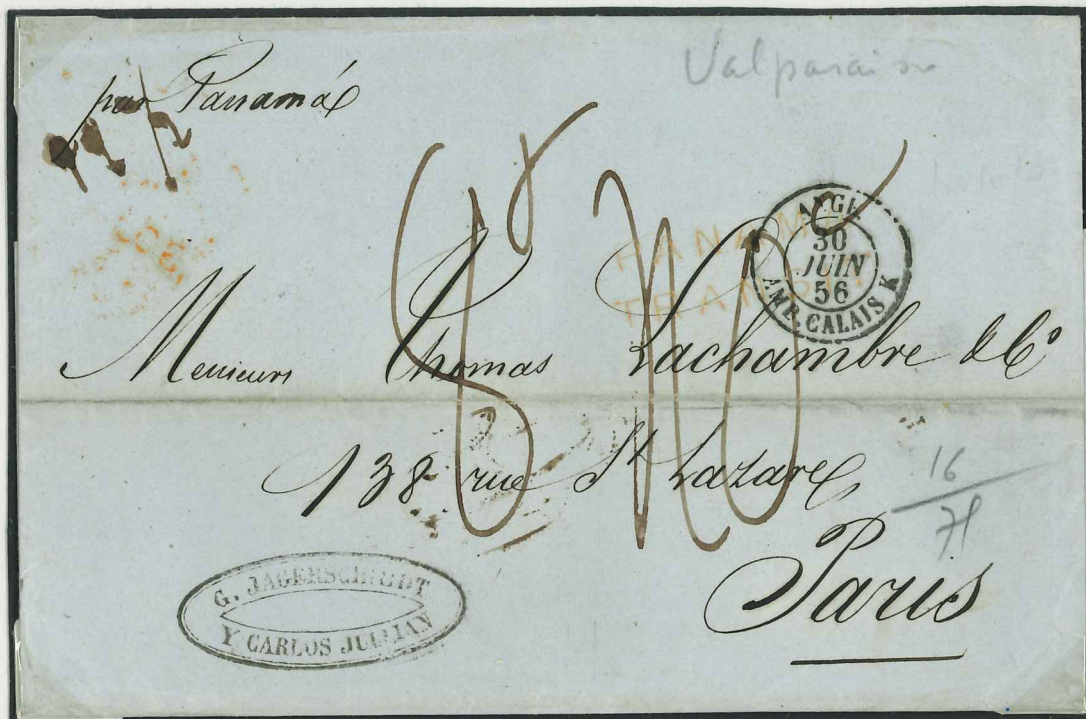 Valparaiso
par Panamá
PANAMA
TRANSIT
ANGL.
30
JUIN
56
AMB. CALAIS K
Messieurs Thomas Lachambre & Cº
138 rue St Lazare
16
Paris
G. JAGERSCHMIDT
Y CARLOS JULLIAN